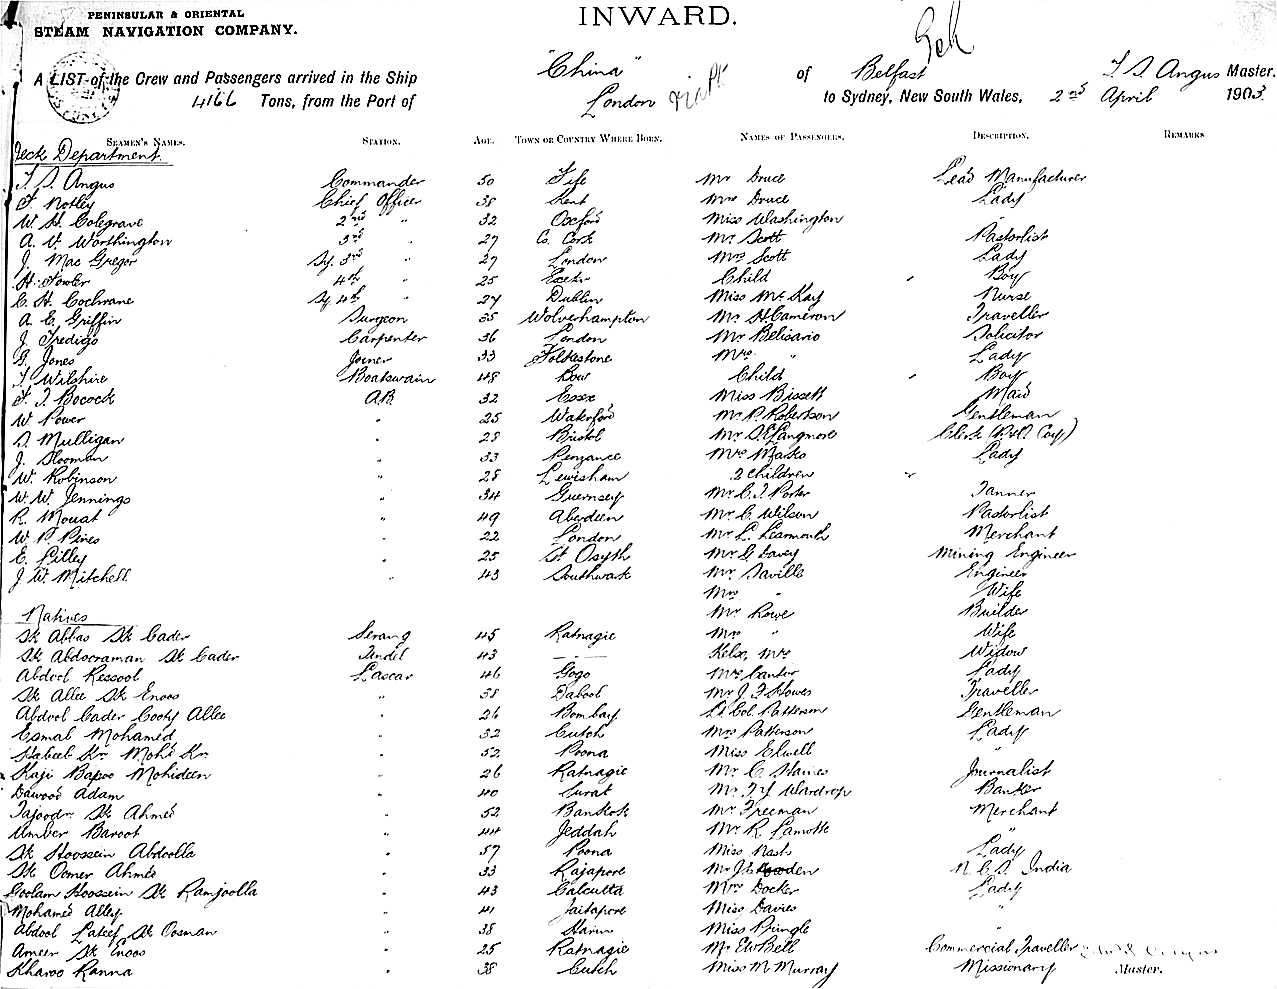 PENINSULAR & ORIENTAL
STEAM NAVIGATION COMPANY.
INWARD.
A LIST of the Crew and Passengers arrived in the Ship "China" of Belfast T S Angus Master.
4166 Tons, from the Port of London to Sydney, New South Wales, 2nd April 1903.
SEAMEN'S NAMES. STATION. AGE. TOWN OR COUNTRY WHERE BORN. NAMES OF PASSENGERS. DESCRIPTION. REMARKS
Deck Department.
T. S. Angus Commander 50 Fife Mr Druce Lead Manufacturer
F. Notley Chief Officer 38 Kent Mrs Druce Lady
W. H. Colegrave 2nd " 32 Oxford Miss Washington "
A. V. Worthington 3rd " 27 Co. Cork Mr Scott Pastorlist
J. Mac Gregor Sy. 3rd " 27 London Mrs Scott Lady
H. Fowler 4th " 25 Exeter Child Boy
C. H. Cochrane Sy 4th " 24 Dublin Miss Mc Kay Nurse
A. E. Griffin Surgeon 35 Wolverhampton Mr H. Cameron Traveller
J. Tredigo Carpenter 36 London Mr Belisario Solicitor
G. Jones Joiner 33 Folkestone Mrs " Lady
T. Wilshire Boatswain 48 Bow Child Boy
F. J. Bocock A.B. 32 Essex Miss Bissett Maid
W Power " 25 Waterford Mr P. Robertson Gentleman
D. Mulligan " 28 Bristol Mr S. E. Langmore Clerk (P&O. Coy)
J. Slooman " 33 Penzance Mrs Marks Lady
W. Robinson " 28 Lewisham 2 Children "
W. W. Jennings " 34 Guernsey Mr C. J. Porter Tanner
R. Mouat " 49 Aberdeen Mr C. Wilson Pastorlist
W. P. Pines " 22 London Mr L. Learmonth Merchant
E. Lilley " 25 St Osyth Mr G Davey Mining Engineer
J. W. Mitchell " 43 Southwark Mr Saville Engineer
Mrs " Wife
Natives Mr Rowe Builder
Sk Abbas Sk Cader Serang 45 Ratnagie Mrs " Wife
Sk Abdooraman Sk Cader Tindel 43 Kelso, Mrs Widow
Abdool Ressool Lascar 46 Gogo Mrs Cantor Lady
Sk Allee Sk Enoos " 38 Dabool Mr J. F. Howes Traveller
Abdool Cader Cooty Allee " 26 Bombay Lt Col. Patterson Gentleman
Esmal Mohamed " 32 Cutch Mrs Patterson Lady
Habeeb Kn Mohd Kn " 52 Poona Miss Elwell "
Kaji Bapoo Mohideen " 26 Ratnagie Mr C. Haines Journalist
Dawood Adam " 40 Surat Mr T. Y Wardrop Banker
Tajoodn Sk Ahmed " 52 Bankok Mr Freeman Merchant
Umber Baroot " 44 Jeddah Mr R Lamotte "
Sk Hoossein Abdoolla " 57 Poona Miss Nash Lady
Sk Oomer Ahmed " 33 Rajapore Mr J. E. N. C. S. India
Goolam Hoossein Sk Ramjoolla " 43 Calcutta Mrs Docker Lady
Mohamed Alley " 41 Jaitapore Miss Davies "
Abdool Lateef Sk Oosman " 38 Miss Pringle "
Ameer Sk Enoos " 25 Ratnagie Mr E W Bell Commercial Traveller
Kharoo Ranna " 38 Cutch Miss M Murray Missionary Master.